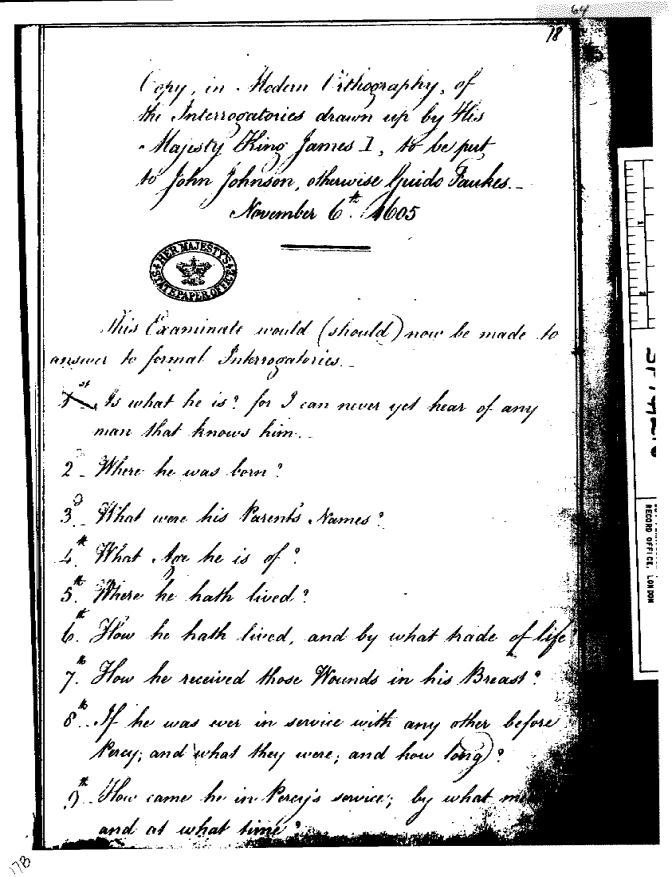 64
18
Copy, in Modern Orthography, of
the Interrogatories drawn up by His
Majesty King James I, to be put
to John Johnson, otherwise Guido Faukes._
November 6th. 1605
HER MAJESTY'S
STATE PAPER OFFICE
This Examinate would (should) now be made to
answer to formal Interrogatories._
1st_ Is what he is? for I can never yet hear of any
man that knows him._
2_ Where he was born?
3d_ What were his Parent's Names?
4th_ What Age he is of?
5th_ Where he hath lived?
6th. How he hath lived, and by what trade of life?
7th. How he received those Wounds in his Breast?
8th_ If he was ever in service with any other before
Percy; and what they were; and how long)?
9th_ How came he in Percy's service; by what
and at what time?
178
RECORD OFFICE, LONDON